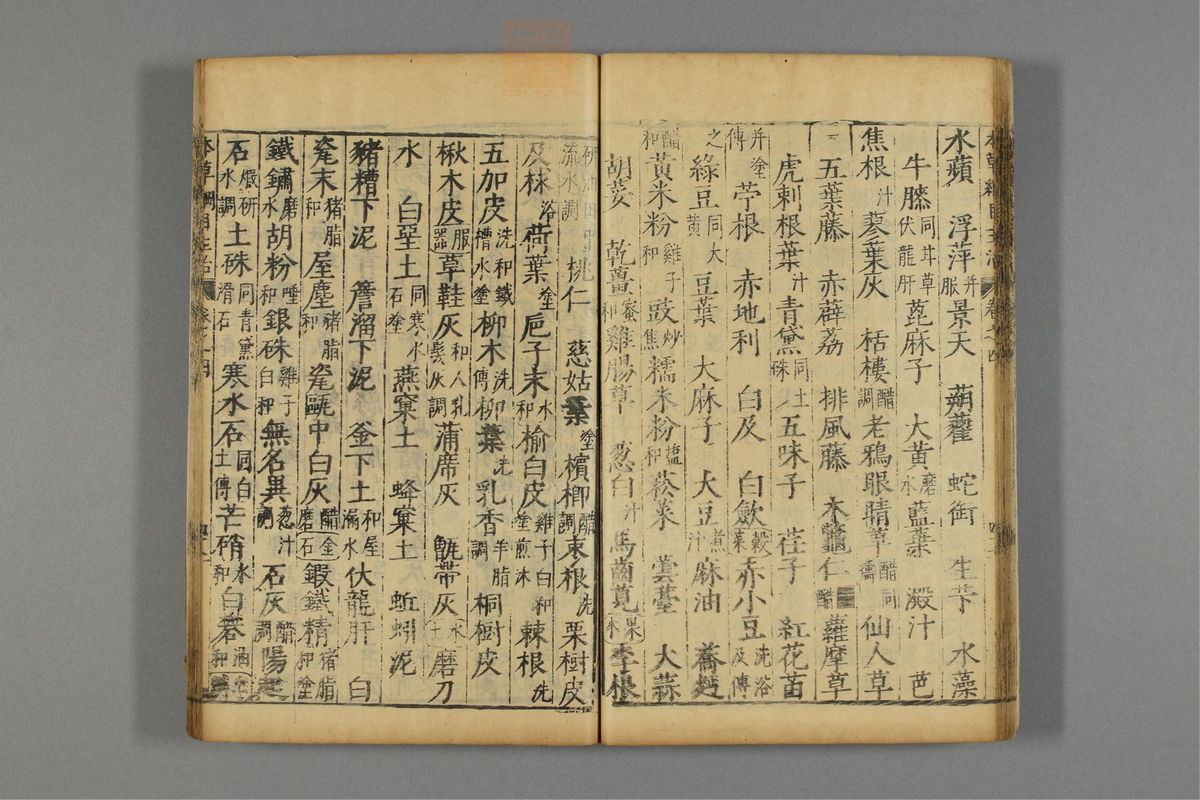 水蘋　浮萍并服景天　蒴藋　蛇銜　生苄　水藻
牛膝同茸草伏龍肝萞麻子　大黃磨水藍葉　澱汁　芭
焦根汁蓼葉灰　栝樓醋調老鴉眼睛草醋同擣仙人草
五葉藤　赤薜荔　排風藤　木鼈仁醋蘿摩草
虎刺根葉汁青黛同土硃五味子　荏子　紅花苗
并塗傅苧根　赤地利　白及　白斂
穀菜赤小豆洗浴及傅
之綠豆同大黃豆葉　大麻子　大豆煮汁麻油　蕎麪
醋和黃米粉雞子和豉炒焦糯米粉鹽和菘菜　蕓薹　大蒜
胡荽　乾薑蜜和雞腸草　葱白汁馬齒莧
果木李根
研油
流水調桃仁　慈姑葉塗檳榔醋調
棗根洗栗樹皮
及林浴荷葉塗巵子末水和榆白皮雞子白和塗煎沐棘根洗
五加皮洗和鐵槽水塗柳木洗傅柳葉洗乳香羊脂調桐樹皮
楸木皮
服器草鞋灰和人乳髮灰調蒲席灰　甑帶灰
水土磨刀
水　白堊土同寒水石塗燕窠土　蜂窠土　蚯蚓泥
豬糟下泥　簷溜下泥　釜下土和屋漏水伏龍肝　白
瓷末豬脂和屋塵豬脂和瓷甌中白灰醋磨
金石鍛鐵精豬脂和塗
鐵鏽磨水胡粉唾和銀硃雞子白和無名異葱汁調石灰醋調陽起
石煅研水調土硃同青黛滑石寒水石同白土傅芒硝水和白礬油和